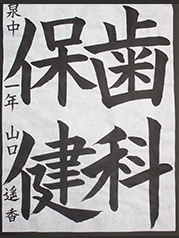 歯科
保健
泉中 一年 山口 遥香